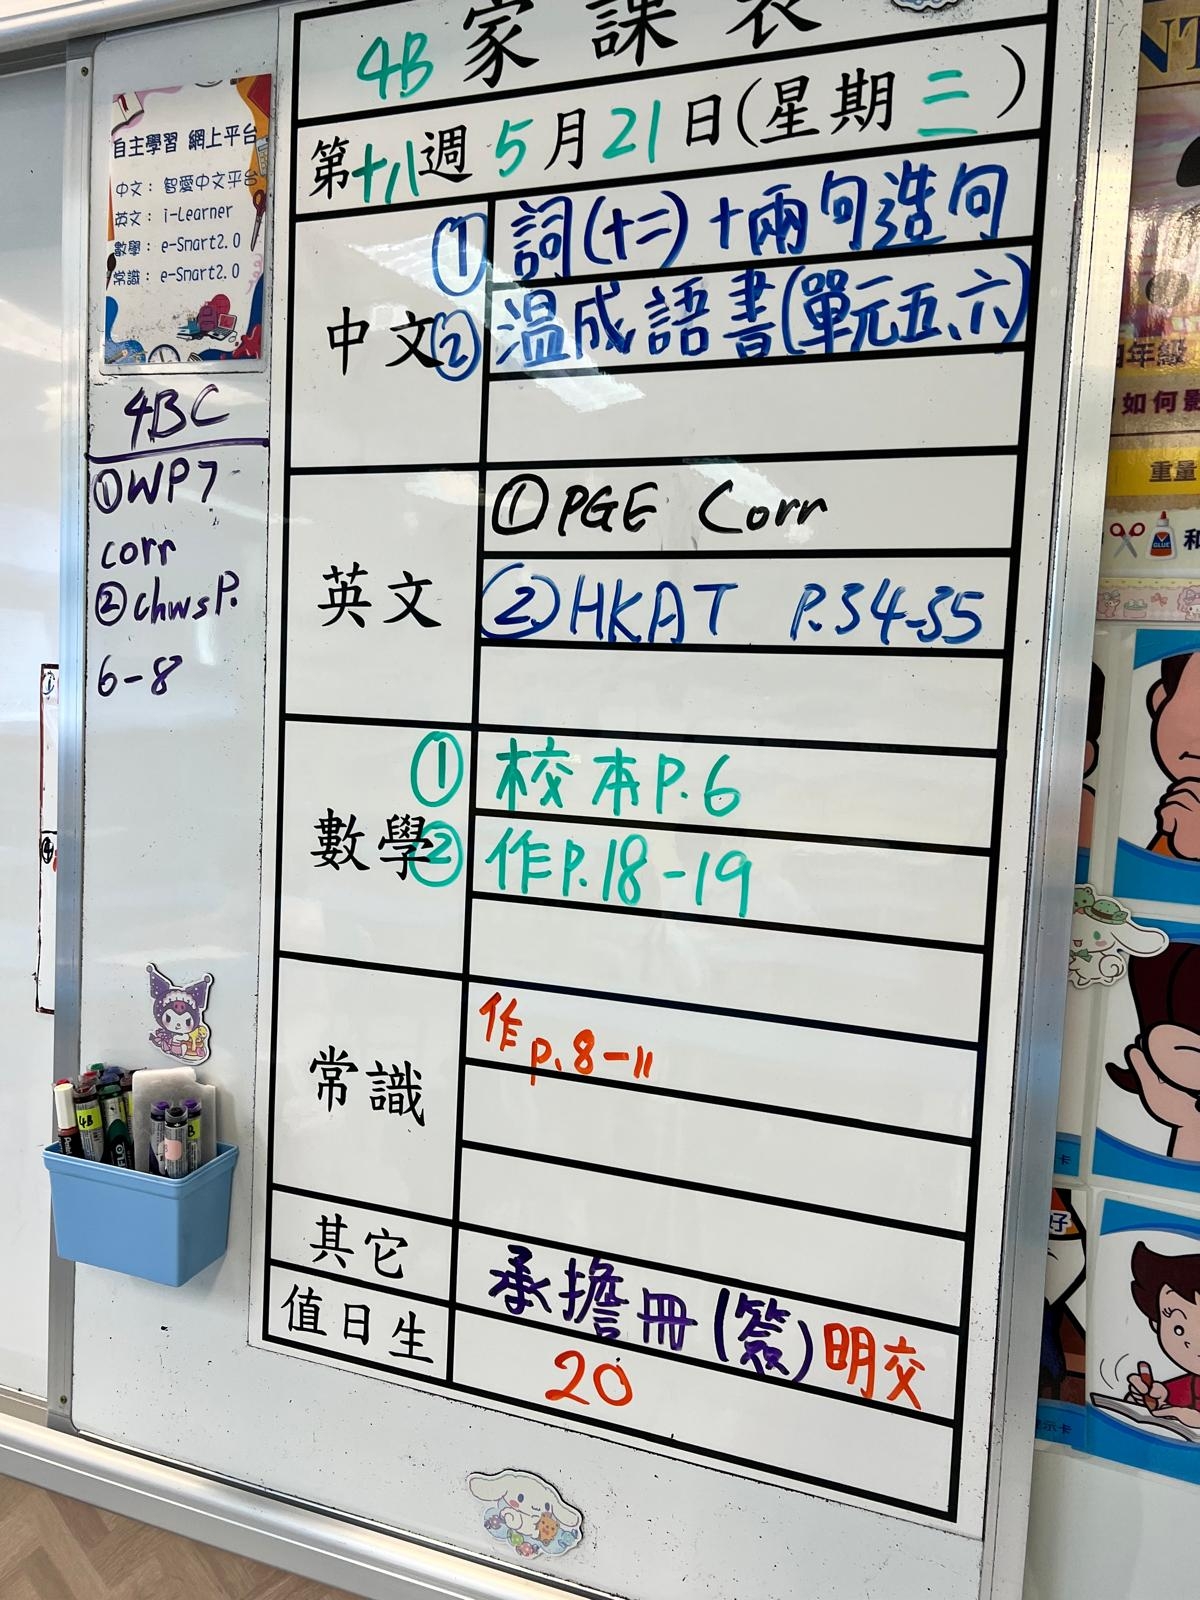 4B 家課表
第十八週 5月21日(星期二)
中文
① 詞(十二)+兩句造句
② 溫成語書(單元五、六)
英文
① PGE Corr
② HKAT P.34-35
數學
① 校本P.6
② 作P.18-19
常識
作p.8-11
其它
承擔冊(簽)明交
值日生
20
自主學習 網上平台
中文： 智愛中文平台
英文： i-Learner
數學： e-Smart2.0
常識： e-Smart2.0
4BC
①WP7
corr
②chwsP.
6-8
4B
四年級
如何影
重量
GLUE
和
卡
好
示卡